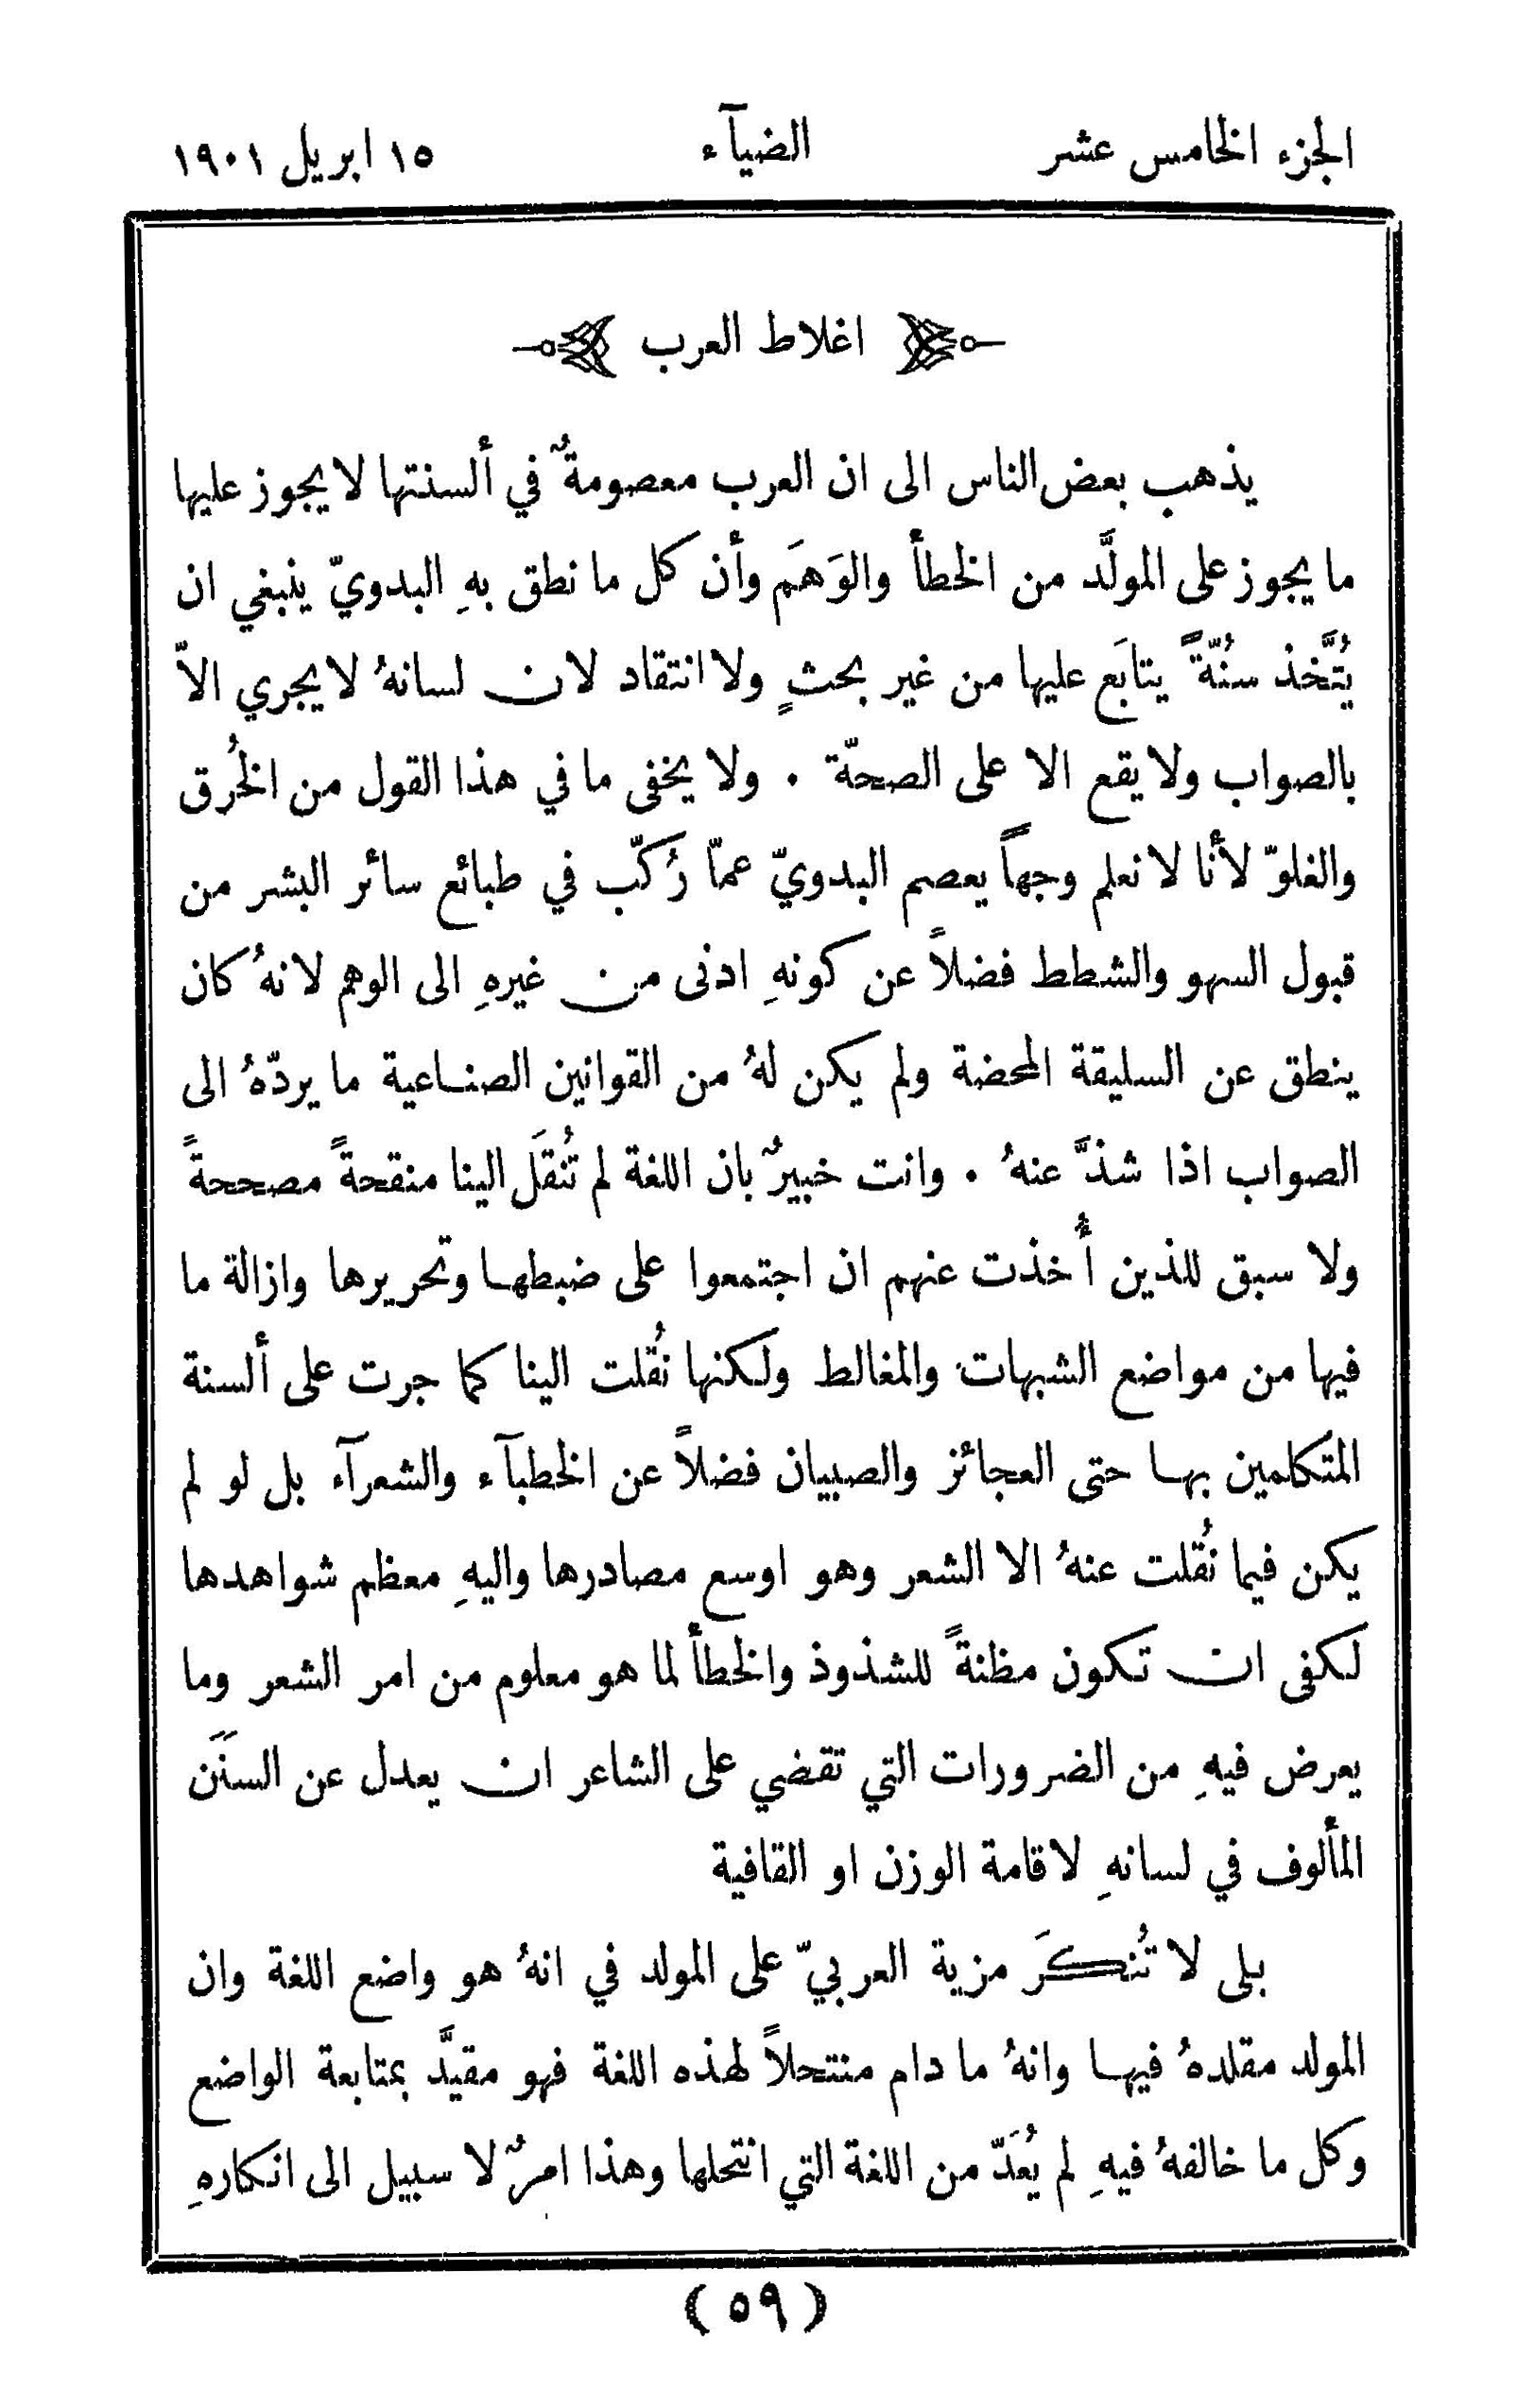 الجزء الخامس عشر الضيآء ١٥ ابريل ١٩٠١
اغلاط العرب
يذهب بعض الناس الى ان العرب معصومةٌ في ألسنتها لا يجوز عليها
ما يجوز على المولَّد من الخطأ والوَهَم وأن كل ما نطق بهِ البدويّ ينبغي ان
يُتَّخذ سُنّةً يتابَع عليها من غير بحثٍ ولا انتقاد لان لسانهُ لا يجري الاّ
بالصواب ولا يقع الا على الصحّة . ولا يخفى ما في هذا القول من الخُرق
والغلوّ لأنا لا نعلم وجهاً يعصم البدويّ عمّا رُكّب في طبائع سائر البشر من
قبول السهو والشطط فضلاً عن كونهِ ادنى من غيرهِ الى الوهم لانهُ كان
ينطق عن السليقة المحضة ولم يكن لهُ من القوانين الصناعية ما يردّهُ الى
الصواب اذا شذَّ عنهُ . وانت خبيرٌ بان اللغة لم تُنقَل الينا منقحةً مصححةً
ولا سبق للذين أُخذت عنهم ان اجتمعوا على ضبطها وتحريرها وازالة ما
فيها من مواضع الشبهات والمغالط ولكنها نُقلت الينا كما جرت على ألسنة
المتكلمين بها حتى العجائز والصبيان فضلاً عن الخطبآء والشعرآء بل لو لم
يكن فيما نُقلت عنهُ الا الشعر وهو اوسع مصادرها واليهِ معظم شواهدها
لكفى ان تكون مظنةً للشذوذ والخطأ لما هو معلوم من امر الشعر وما
يعرض فيهِ من الضرورات التي تقضي على الشاعر ان يعدل عن السنَنَ
المألوف في لسانهِ لاقامة الوزن او القافية
بلى لا تُنكَر مزية العربيّ على المولد في انهُ هو واضع اللغة وان
المولد مقلدهُ فيها وانهُ ما دام منتحلاً لهذه اللغة فهو مقيَّد بمتابعة الواضع
وكل ما خالفهُ فيهِ لم يُعَدّ من اللغة التي انتحلها وهذا امرٌ لا سبيل الى انكارهِ
(٥٩)